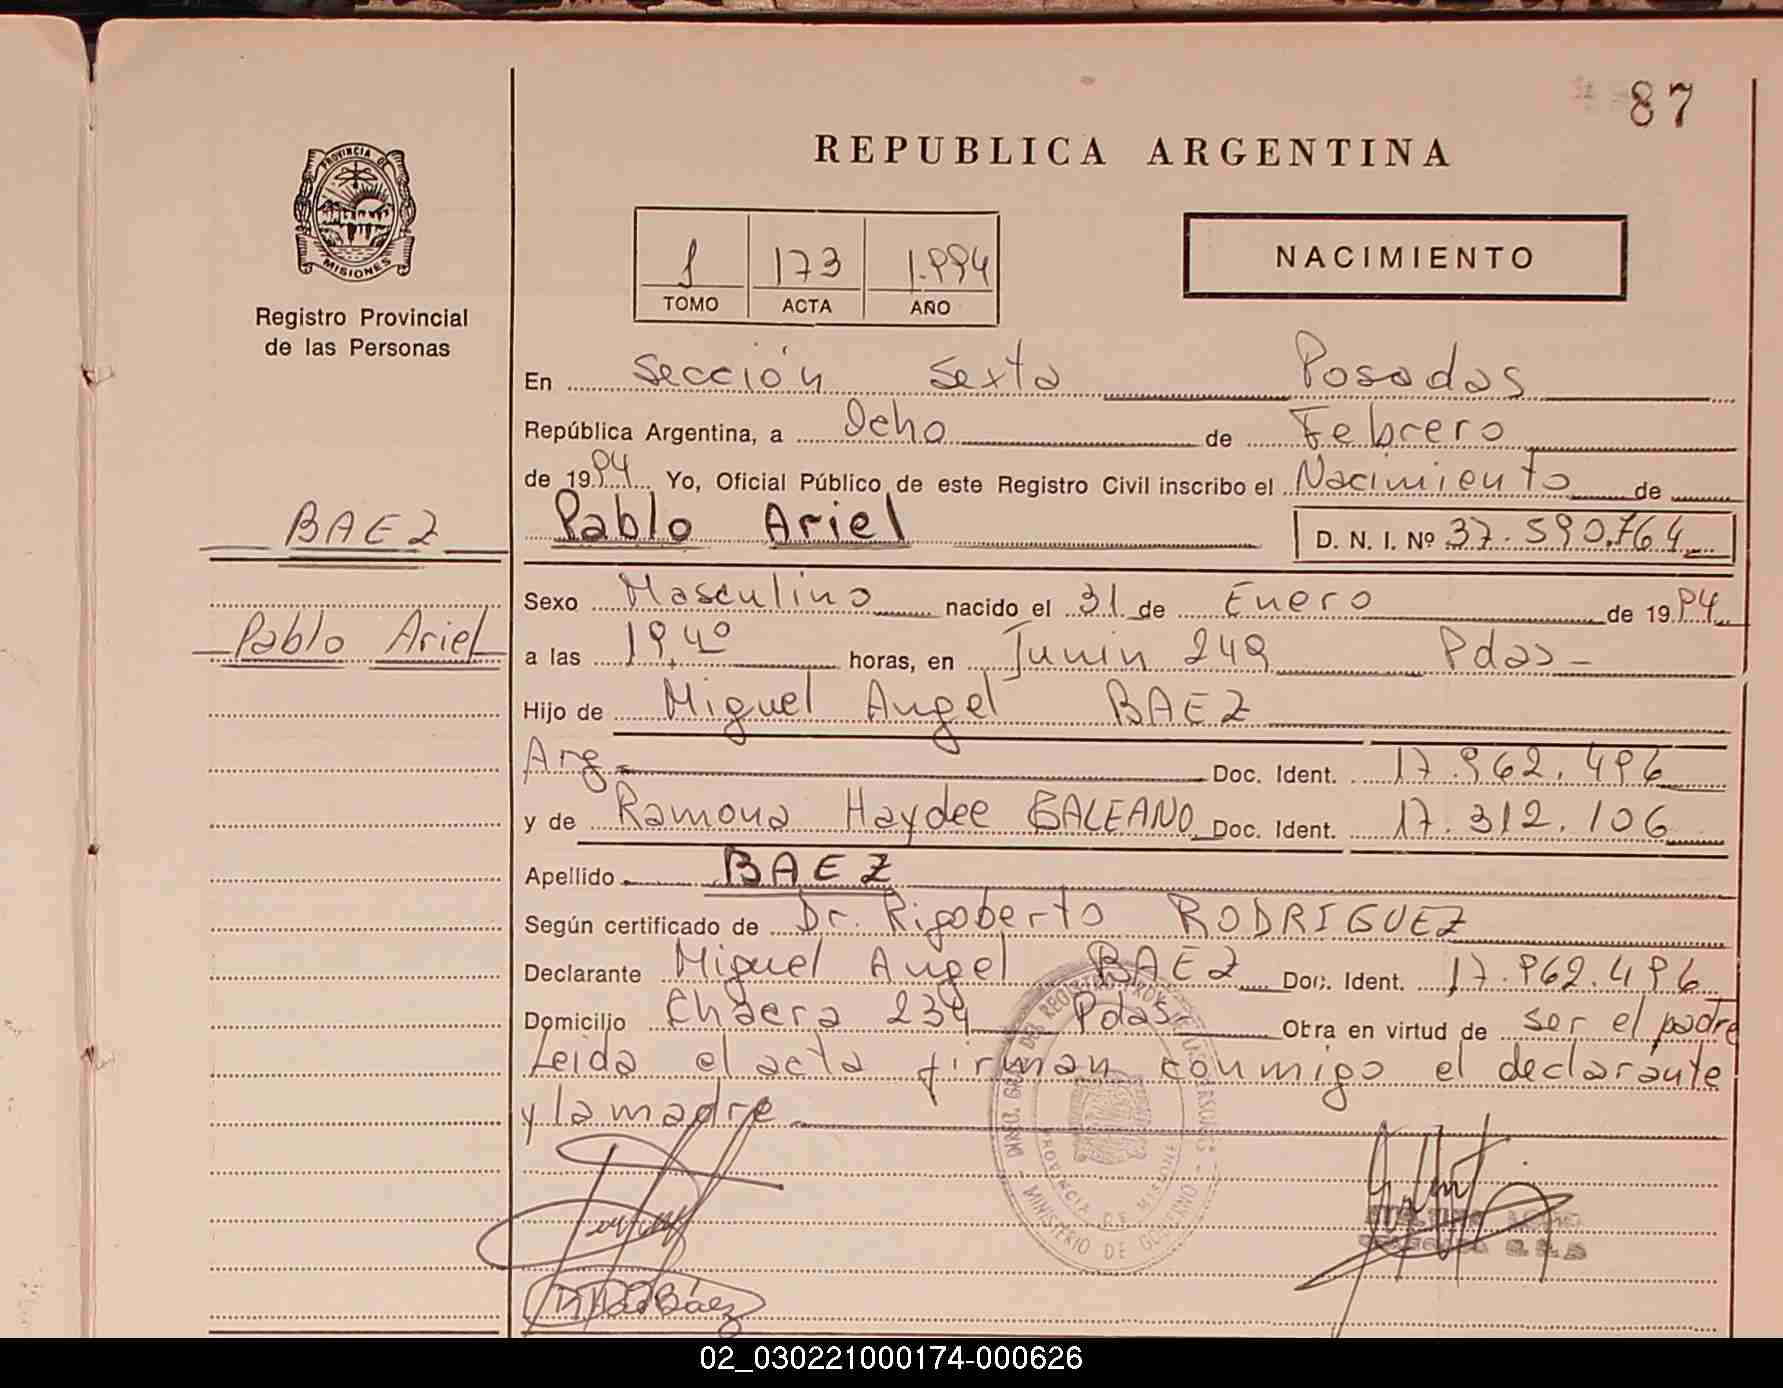 87
REPUBLICA ARGENTINA
PROVINCIA DE
MISIONES
Registro Provincial
de las Personas
1 173 1.994
TOMO ACTA AÑO
NACIMIENTO
En Sección Sexta Posadas
República Argentina, a Ocho de Febrero
de 1994 Yo, Oficial Público de este Registro Civil inscribo el Nacimiento de
BAEZ
Pablo Ariel D. N. I. Nº 37.590.764
Sexo Masculino nacido el 31 de Enero de 1994
Pablo Ariel
a las 19,40 horas, en Junin 249 Pdas
Hijo de Miguel Angel BAEZ
Arg. Doc. Ident. 17.962.496
y de Ramona Haydee BALEANO Doc. Ident. 17.312.106
Apellido BAEZ
Según certificado de Dr. Rigoberto RODRIGUEZ
Declarante Miguel Angel BAEZ Doc. Ident. 17.962.496
Domicilio 234 Pdas Obra en virtud de ser el padre
Leida el acta firman conmigo el declarante
y la madre
PROVINCIA DE MISIONES
MINISTERIO DE GOBIERNO
Báez
02_030221000174-000626